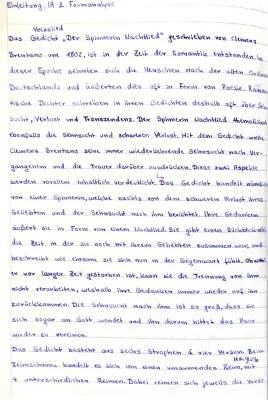 Einleitung, IA & Formanalyse
Volkslied
Das Gedicht „Der Spinnerin Nachtlied" geschrieben von Clemens
Brentano um 1802, ist in der Zeit der Romantik entstanden. In
dieser Epoche sehnten sich die Menschen nach der alten Ordnung
Deutschlands und äußerten dies oft in Form von Poesie. Roman-
tische Dichter schreiben in ihren Gedichten deshalb oft über Sehn-
sucht, Verlust und Transzendenz. Der Spinnerin Nachtlied thematisiert
ebenfalls die Sehnsucht und schweren Verlust. Mit dem Gedicht
Clemens Brentano seine immer wiederkehrende Sehnsucht nach Ver-
gangenem und die Trauer darüber ausdrücken. Diese zwei Aspekte
werden vorallem inhaltlich verdeutlicht. Das Gedicht handelt
von einer Spinnerin, welche nachts von dem schweren Verlust ihres
Geliebten und der Sehnsucht nach ihm berichtet. Ihre Gedanken
äußert sie in Form von einem Nachtlied. Sie gibt einen Rückblick
die Zeit in der sie noch mit ihrem Geliebten zusammen war, und
beschreibt wie einsam sie sich nun in der Gegenwart fühlt. Obwohl
er vor langer Zeit gestorben ist, kann sie die Trennung von ihm
nicht verarbeiten, weshalb ihre Gedanken immer wieder auf ihn
zurückkommen. Die Sehnsucht nach ihm ist so groß, dass sie
sich sogar an Gott wendet und ihn darum bittet das Paar
wieder zu vereinen.
Das Gedicht besteht aus sechs Strophen à vier Versen. Beim
Reimschema handelt es sich um einen umarmenden Reim, mit
4 unterschiedlichen Reimen. Dabei reimen sich jeweils die Verse